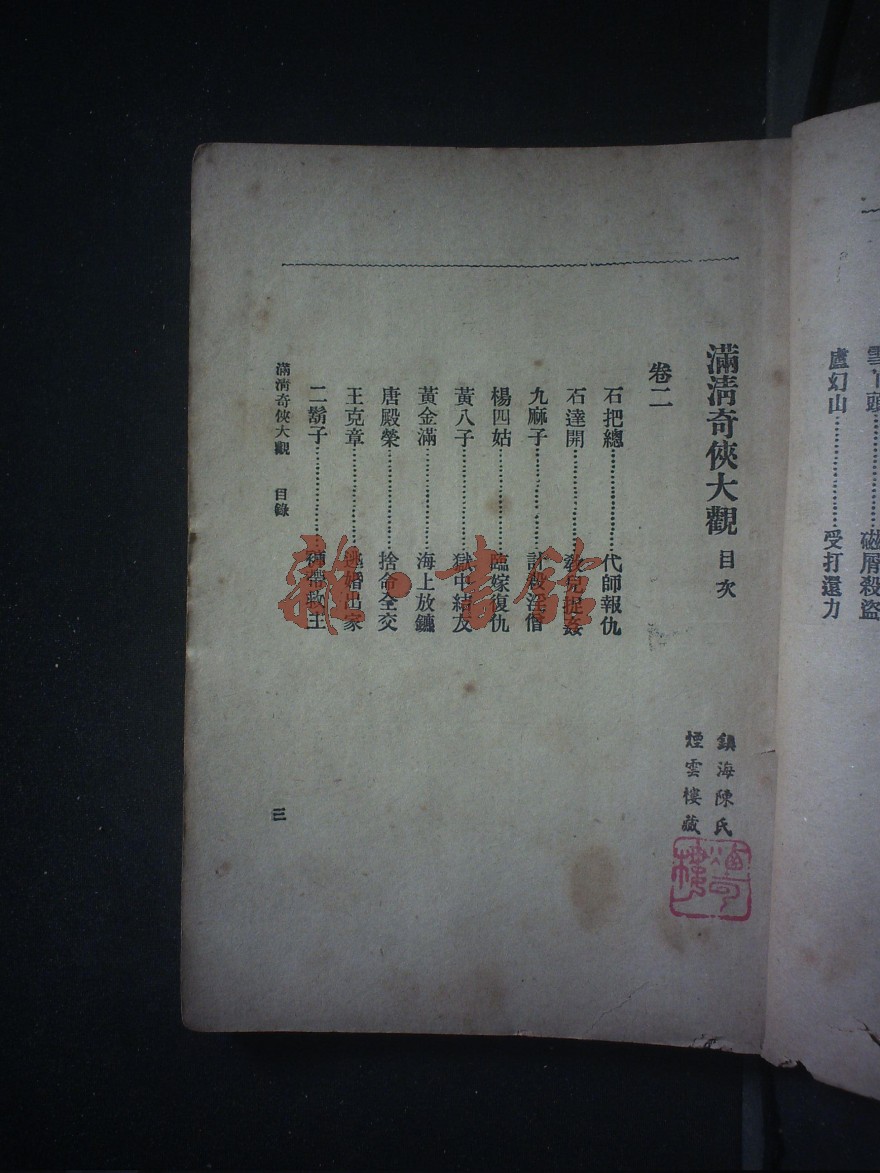 雪
頭……………磁屑殺盜
盧幻山……………受打還力
滿淸奇俠大觀 目次
鎮海陳氏
煙雲樓藏
卷二
石把總……………代師報仇
石達開……………敎兒捉姦
九麻子……………計殺淫僧
楊四姑……………臨嫁復仇
黃八子……………獄中結友
黃金滿……………海上放鑣
唐殿榮……………捨命全交
王克章……………逃婚出家
二鬍子……………救主
滿淸奇俠大觀 目錄
三
雜·書館